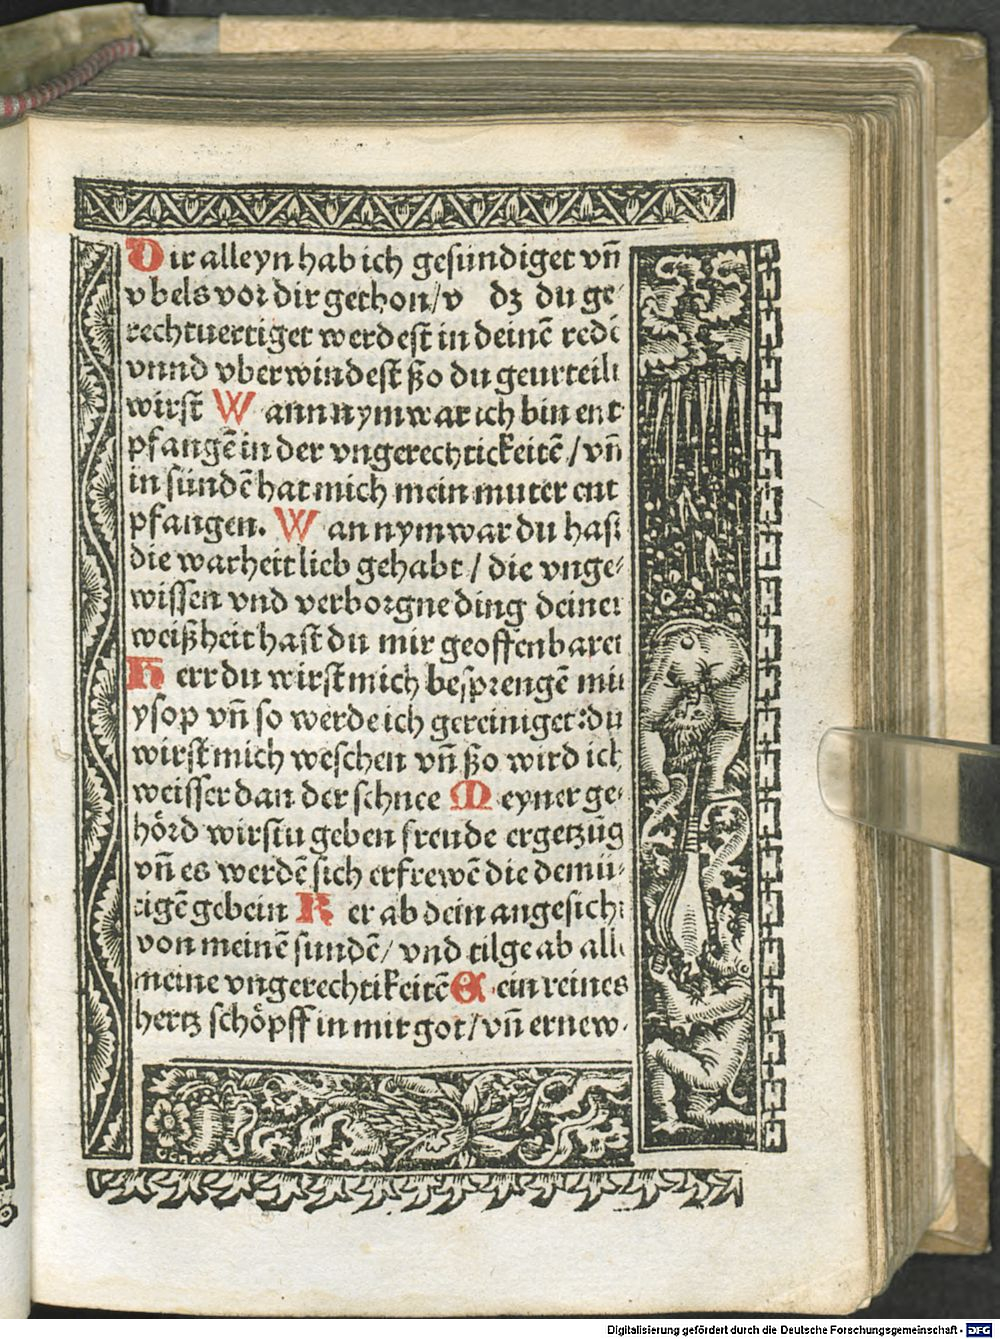 Dir alleyn hab ich gesundiget vñ
vbels vor dir gethon/v dz du ge⸗
rechtuertiget werdest in deinē redē
vnnd vberwindest ßo du geurteilt
wirst Wann nym war ich bin ent
pfangē in der vngerechtickeitē/vñ
in sundē hat mich mein muter ent
pfangen. Wan nym war du hast
die warheit lieb gehabt/die vnge⸗
wissen vnd verborgne ding deiner
weißheit hast du mir geoffenbaret
Herr du wirst mich besprengē mit
ysop vñ so werde ich gereiniget:du
wirst mich weschen vñ ßo wird ich
weisser dan der schnee Meyner ge⸗
hörd wirstu geben freude ergetzūg
vñ es werdē sich erfrewē die demü⸗
tigē gebein Ker ab dein angesicht
von meinē sundē/vnd tilge ab alle
meine vngerechtikeitē Ein reines
hertz schöpff in mir got/vñ ernew⸗
Digitalisierung gefördert durch die Deutsche Forschungsgemeinschaft - DFG